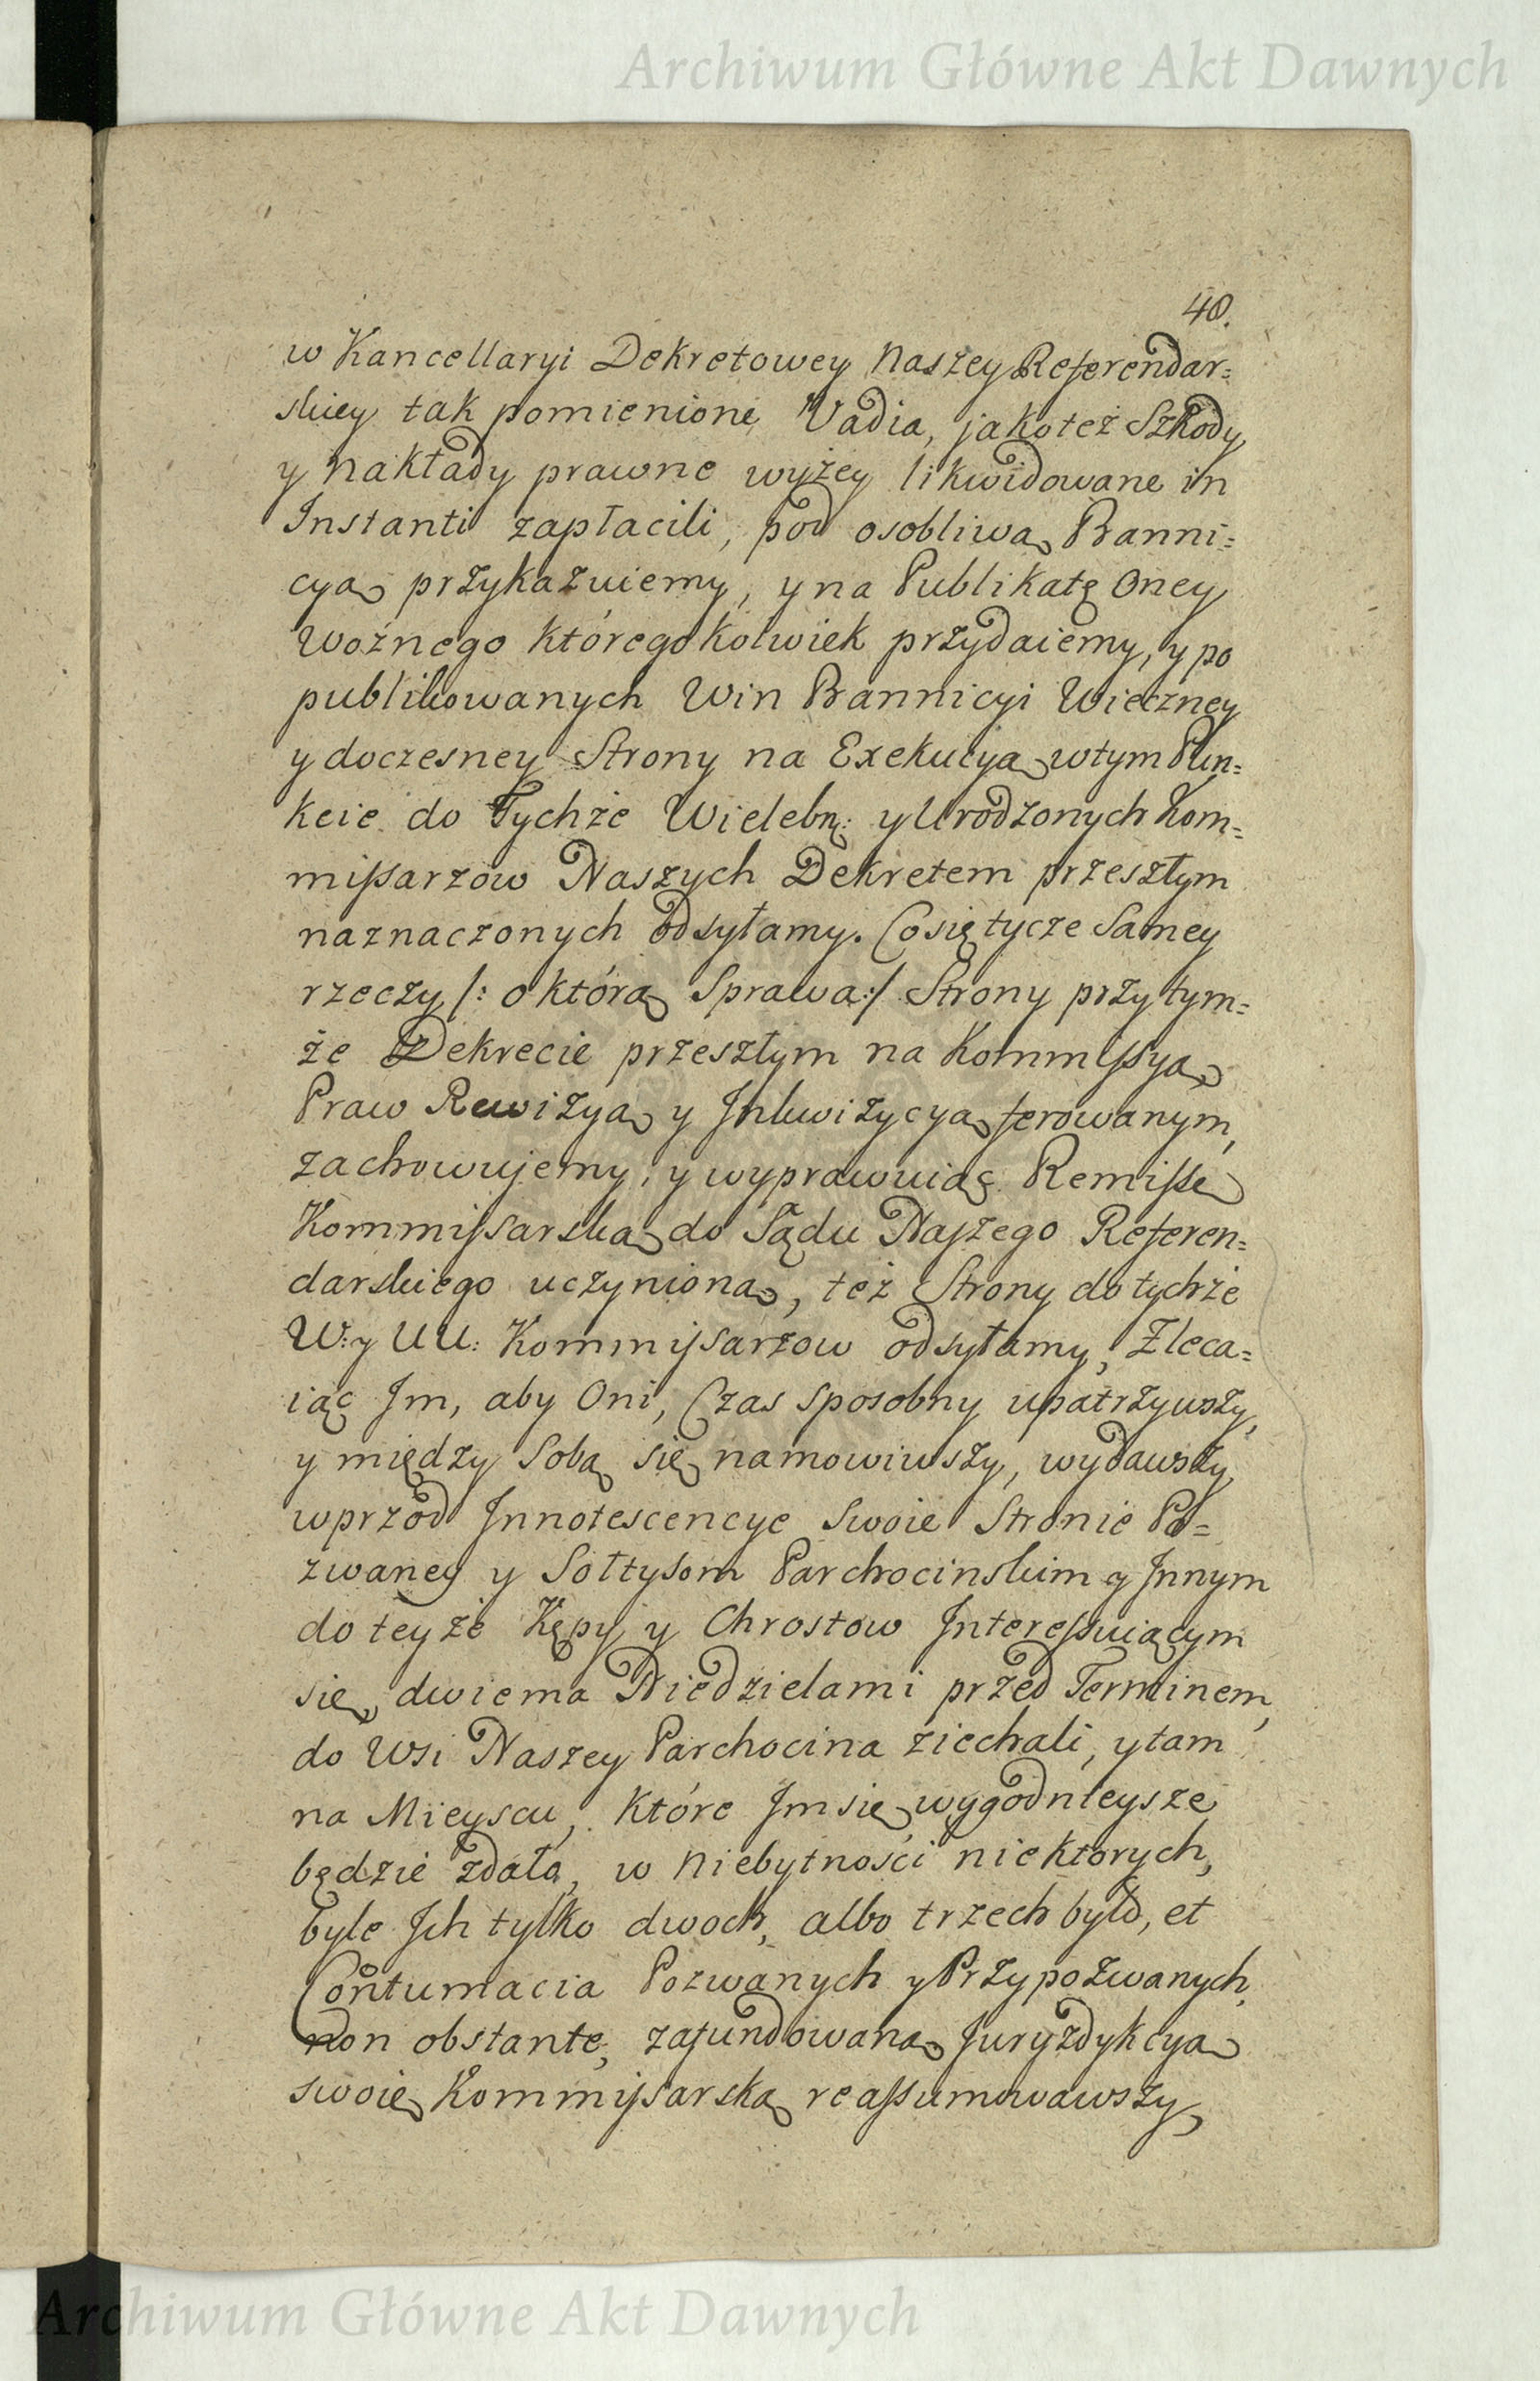 Archiwum Główne Akt Dawnych
40.
w Kancellaryi Dekretowey Naszey Referendar=
skiey tak pomienione Vadia, jako też Szkody
y nakłady prawne wyżey likwidowane in
Instanti zapłacili, pod osobliwą Banni=
cyą przykazuiemy, y na Publikatę Oney
Woźnego któregokolwiek przydaiemy, y po
publikowanych Win Bannicyi Wieczney
y doczesney Strony na Exekucyą w tym Pun=
kcie do Tychże Wielebn: y Urodzonych Kom=
missarzow Naszych Dekretem przeszłym
naznaczonych odsyłamy. Co się tycze Samey
rzeczy /: o którą Sprawa:/ Strony przy tym=
że Dekrecie przeszłym na Kommissyą
Praw Rewizyą y Inkwizycyą ferowanym,
zachowujemy, y wyprawuiąc Remissę
Kommissarską do Sądu Naszego Referen=
darskiego uczynioną, też Strony do tychże
W: y UU: Kommissarzow odsyłamy, Zleca=
iąc Im, aby Oni, Czas sposobny upatrzywszy,
y między Sobą się namowiwszy, wydawszy
wprzod Innotescencye Swoie Stronie Po=
zwaney y Sołtysom Parchocinskim y Innym
do teyże Kępy y Chrostow Interessuiącym
się, dwiema Niedzielami przed Terminem,
do Wsi Naszey Parchocina ziechali, y tam
na Mieyscu, które Im się wygodnieysze
będzie zdało, w Niebytności niektorych,
byle Ich tylko dwoch, albo trzech było, et
Contumacia Pozwanych y Przypozwanych
non obstante, zafundowaną Juryzdykcyą
swoię Kommissarską reassumowawszy,
Archiwum Główne Akt Dawnych